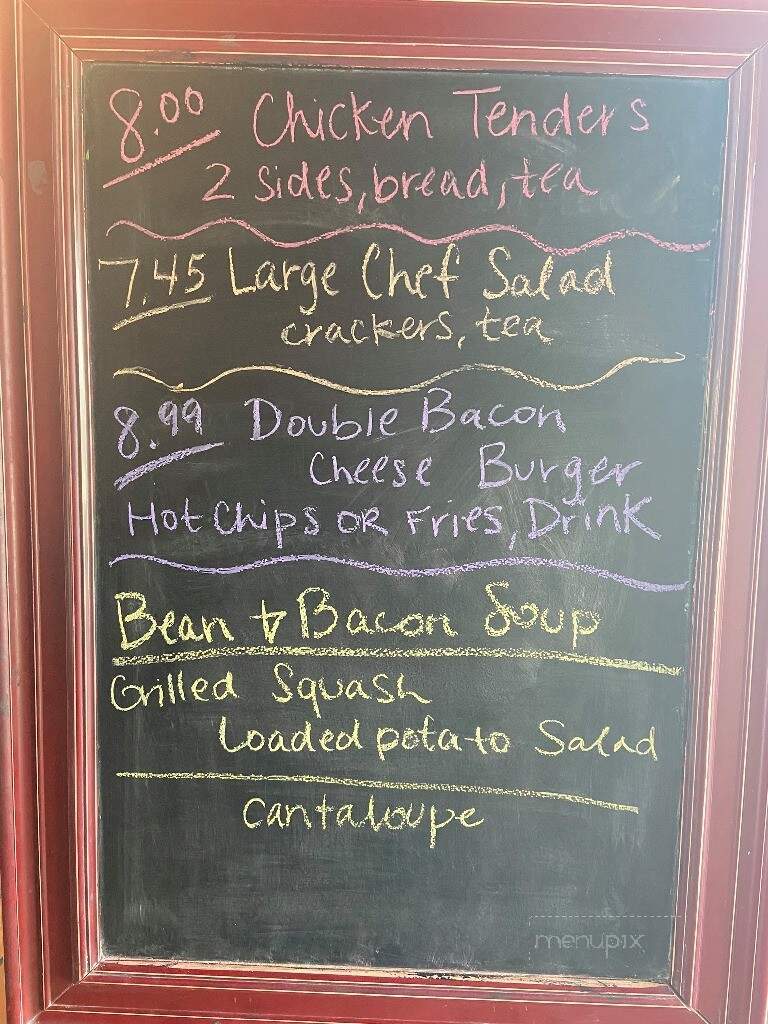 8.00 Chicken Tenders
2 sides, bread, tea
7.45 Large Chef Salad
crackers, tea
8.99 Double Bacon
Cheese Burger
Hot Chips OR Fries, Drink
Bean + Bacon Soup
Grilled Squash
Loaded potato Salad
Cantaloupe
menupix